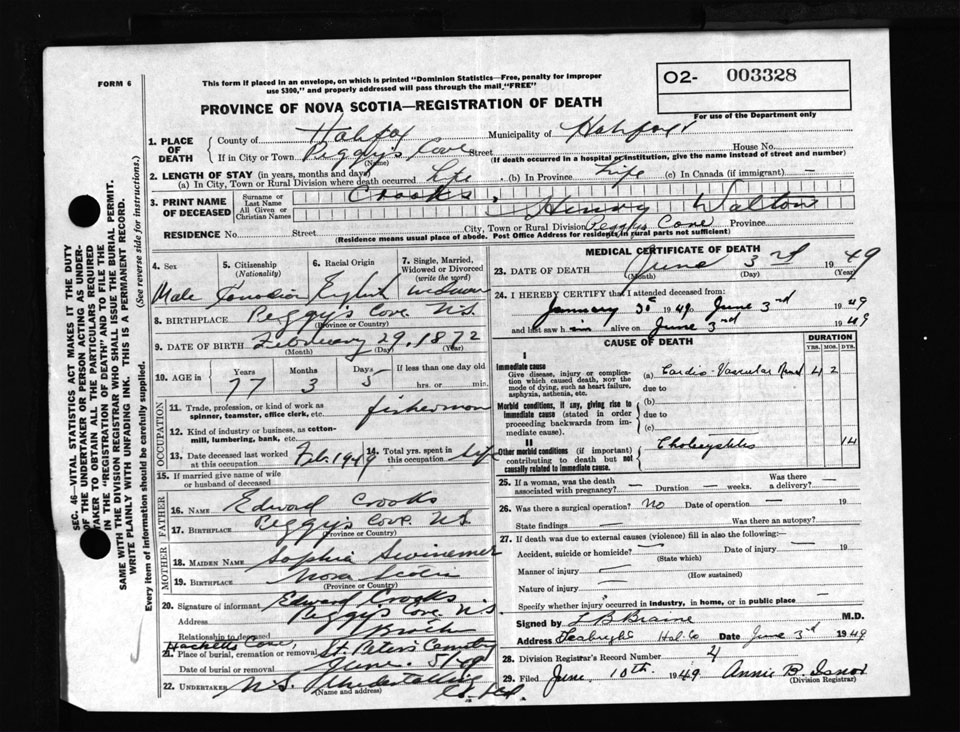 FORM 6
This form if placed in an envelope, on which is printed "Dominion Statistics—Free, penalty for improper
use $300," and properly addressed will pass through the mail "FREE"
O2- 003328
For use of the Department only
PROVINCE OF NOVA SCOTIA—REGISTRATION OF DEATH
1. PLACE OF DEATH County of Halifax Municipality of Halifax
If in City or Town Peggy's Cove Street House No.
(Name) (If death occurred in a hospital or institution, give the name instead of street and number)
2. LENGTH OF STAY (in years, months and days)
(a) In City, Town or Rural Division where death occurred Life . (b) In Province Life (c) In Canada (if immigrant) —
3. PRINT NAME OF DECEASED Surname or Last Name Crooks,
All Given or Christian Names Henry Walton
RESIDENCE No. Street City, Town or Rural Division Peggy's Cove Province
(Residence means usual place of abode. Post Office Address for residents in rural parts not sufficient)
SEC. 46—VITAL STATISTICS ACT MAKES IT THE DUTY
OF THE UNDERTAKER OR PERSON ACTING AS UNDER-
TAKER TO OBTAIN ALL THE PARTICULARS REQUIRED
IN THE "REGISTRATION OF DEATH" AND TO FILE THE
SAME WITH THE DIVISION REGISTRAR WHO SHALL ISSUE THE BURIAL PERMIT.
WRITE PLAINLY WITH UNFADING INK. THIS IS A PERMANENT RECORD.
Every item of information should be carefully supplied. (See reverse side for instructions.)
4. Sex 5. Citizenship (Nationality) 6. Racial Origin 7. Single, Married, Widowed or Divorced (write the word)
Male Canadian English Widower
8. BIRTHPLACE Peggy's Cove N.S.
(Province or Country)
9. DATE OF BIRTH February 29, 1872
(Month) (Day) (Year)
10. AGE in Years Months Days If less than one day old
77 3 5 hrs. or min.
OCCUPATION
11. Trade, profession, or kind of work as
spinner, teamster, office clerk, etc. fisherman
12. Kind of industry or business, as cotton-
mill, lumbering, bank, etc.
13. Date deceased last worked at this occupation Feb. 1949 14. Total yrs. spent in this occupation life
15. If married give name of wife
or husband of deceased
FATHER
16. NAME Edward Crooks
17. BIRTHPLACE Peggy's Cove N.S.
(Province or Country)
MOTHER
18. MAIDEN NAME Sophia Swinemer
19. BIRTHPLACE Nova Scotia
(Province or Country)
20. Signature of informant Edward Crooks
Address Peggy's Cove N.S.
Relationship to deceased
Hacketts Cove
21. Place of burial, cremation or removal St. Peters Cemetery
Date of burial or removal June 5/49
22. UNDERTAKER N.S. Undertaking
(Name and address) Co. Ltd.
MEDICAL CERTIFICATE OF DEATH
23. DATE OF DEATH June 3rd 1949
(Month) (Day) (Year)
24. I HEREBY CERTIFY that I attended deceased from:
January 30 1949 to June 3rd 1949
and last saw him alive on June 3rd 1949
CAUSE OF DEATH DURATION
YRS. MOS. DYS.
I
Immediate cause
Give disease, injury or complica-
tion which caused death, not the
mode of dying, such as heart failure,
asphyxia, asthenia, etc.
(a) Cardio-Vascular 4 2
due to
Morbid conditions, if any, giving rise to
immediate cause (stated in order
proceeding backwards from im-
mediate cause).
(b)
due to
(c)
II
Other morbid conditions (if important)
contributing to death but not
causally related to immediate cause.
Cholecystitis 14
25. If a woman, was the death
associated with pregnancy? — Duration — weeks. Was there a delivery? —
26. Was there a surgical operation? No Date of operation — 19
State findings — Was there an autopsy? —
27. If death was due to external causes (violence) fill in also the following:
Accident, suicide or homicide? — Date of injury — 19
(State which)
Manner of injury —
(How sustained)
Nature of injury —
Specify whether injury occurred in industry, in home, or in public place —
Signed by J B Braine M.D.
Address Seabright Hal. Co Date June 3rd 1949
28. Division Registrar's Record Number 4
29. Filed June 10th. 1949 Annie B. Isnor
(Division Registrar)